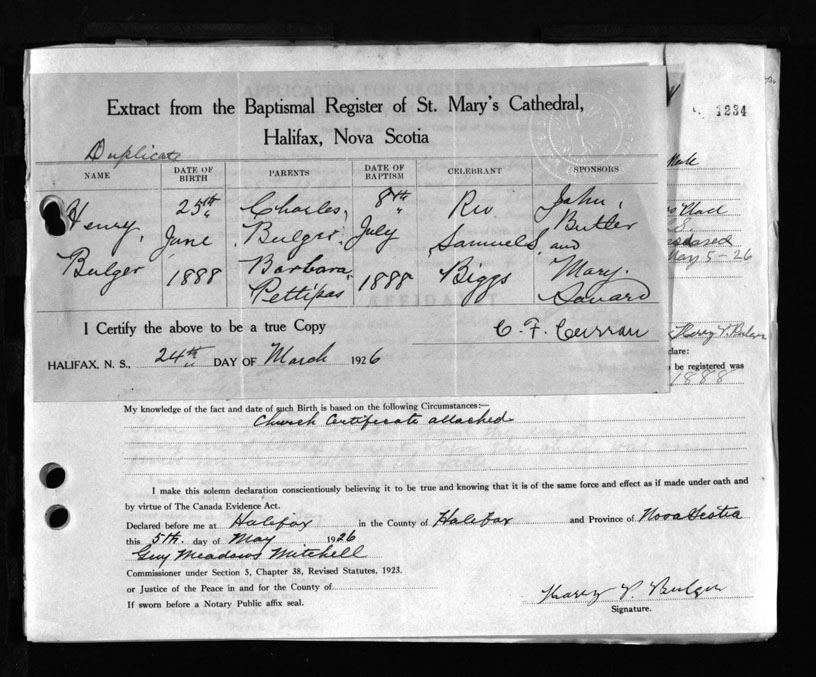 Extract from the Baptismal Register of St. Mary's Cathedral,
Halifax, Nova Scotia
1234
Duplicate
NAME DATE OF BIRTH PARENTS DATE OF BAPTISM CELEBRANT SPONSORS
Henry, 25th Charles, 8th Rev John,
June Bulger, July Samuels, Butler and
Bulger 1888 Barbara, 1888 Biggs Mary.
Pettipas
I Certify the above to be a true Copy C. F. Curran
HALIFAX, N. S., 24th DAY OF March 1926
May 5-26
Harry V. Bulger
be registered was
1888
My knowledge of the fact and date of such Birth is based on the following Circumstances:—
Church Certificate attached
I make this solemn declaration conscientiously believing it to be true and knowing that it is of the same force and effect as if made under oath and
by virtue of The Canada Evidence Act.
Declared before me at Halifax in the County of Halifax and Province of Nova Scotia
this 5th. day of May 1926
Guy Meadows Mitchell
Commissioner under Section 5, Chapter 38, Revised Statutes, 1923.
or Justice of the Peace in and for the County of
If sworn before a Notary Public affix seal.
Harry V. Bulger
Signature.